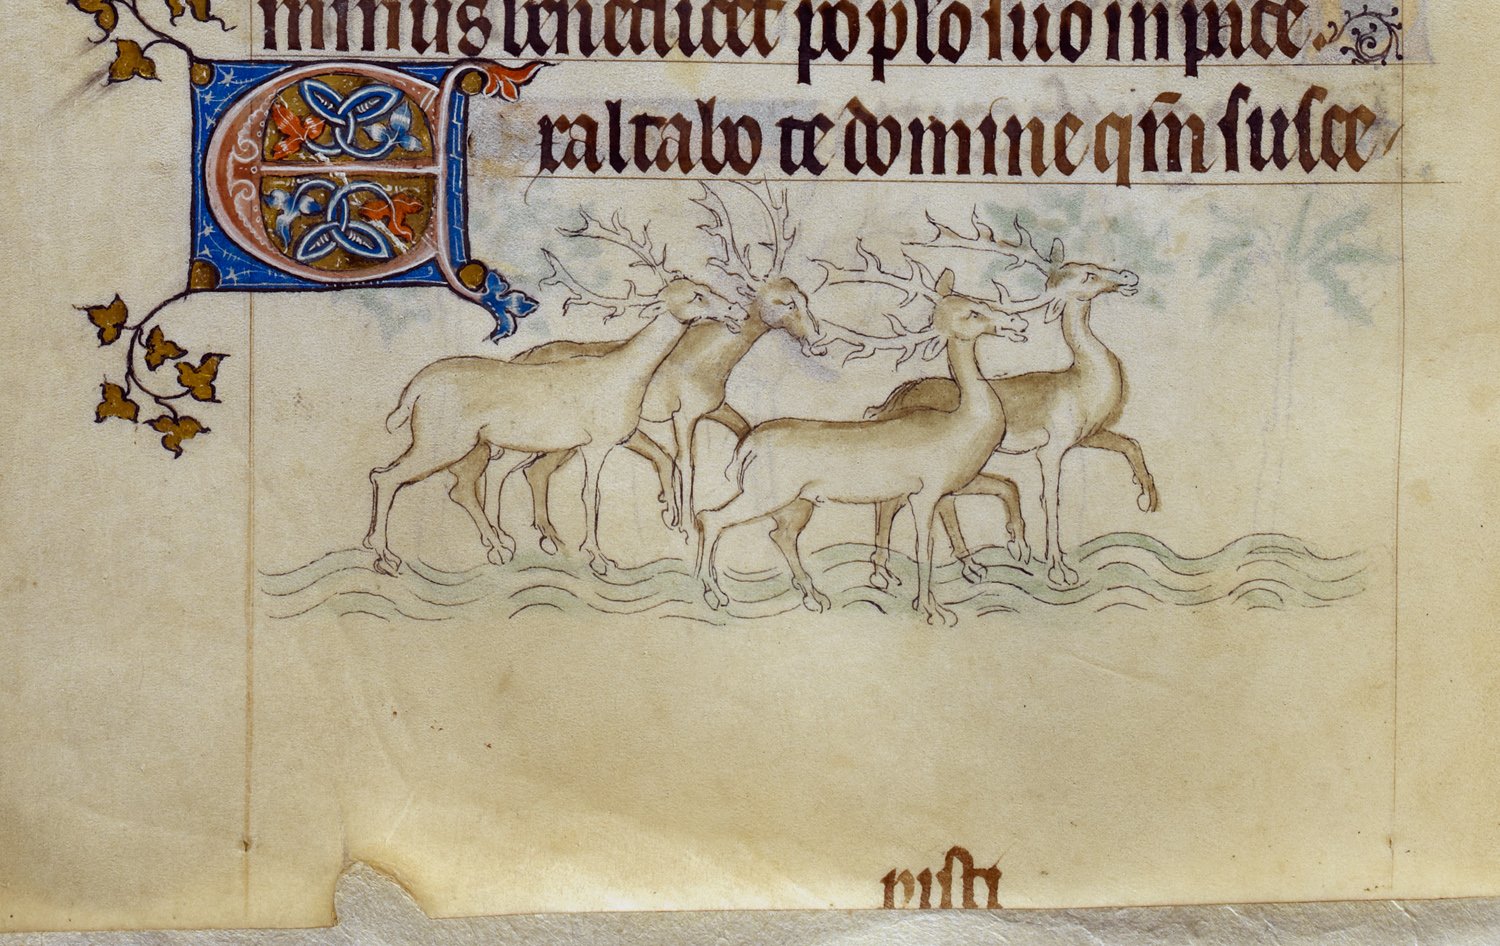 minus benedicet pop̱lo suo in pace.
Exaltabo te domine qm̄ susce
pisti